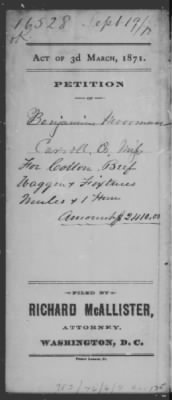 16528 Sept 19/71
ok
ACT OF 3D MARCH, 1871.
PETITION
OF
Benjamin Moorman
Carroll Co, Miss
For Cotton, Beef
Waggon & Fixtures
Mules & 1 Horse
Amount $ 2410.00
FILED BY
RICHARD McALLISTER,
ATTORNEY,
WASHINGTON, D. C.